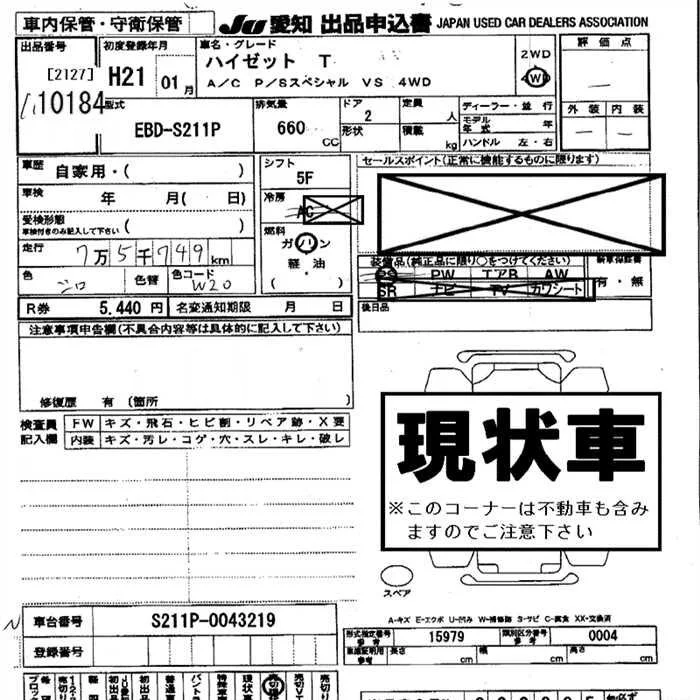 車内保管・守衛保管
JU 愛知 出品申込書 JAPAN USED CAR DEALERS ASSOCIATION
出品番号
[2127]
10184
初度登録年月
H21 01月
車名・グレード
ハイゼット T
A/C P/Sスペシャル VS 4WD
2WD
4WD
評価点
外装 内装
型式
EBD-S211P
排気量
660
CC
ドア
2
形状
定員
人
積載
kg
ディーラー・並行
モデル年式 年
ハンドル 左・右
車歴 自家用・( )
車検 年 月( 日)
受検形態
車検付きのみ記入して下さい ( )
走行 7万5千749km
色 シロ 色替 色コード W20
シフト
5F
冷房
AC
燃料
ガソリン
軽油
( )
セールスポイント(正常に機能するものに限ります)
装備品(純正品に限り○をつけてください)
PS PW エアB AW
SR ナビ TV カワシート
新車保証書
有・無
後日品
R券 5,440円 名変通知期限 月 日
注意事項申告欄(不具合内容等は具体的に記入して下さい)
修復歴 有 (箇所 )
検査員記入欄
FW キズ・飛石・ヒビ割・リペア跡・X要
内装 キズ・汚レ・コゲ・穴・スレ・キレ・破レ
現状車
※このコーナーは不動車も含みますのでご注意下さい
スペア
A-キズ E-エクボ U-凹み W-補修跡 S-サビ C-腐食 XX-交換済
車台番号 S211P-0043219
登録番号
形式指定番号 参考 15979 類別区分番号 参考 0004
車庫証明用 参考 長さ cm 幅 cm 高さ cm